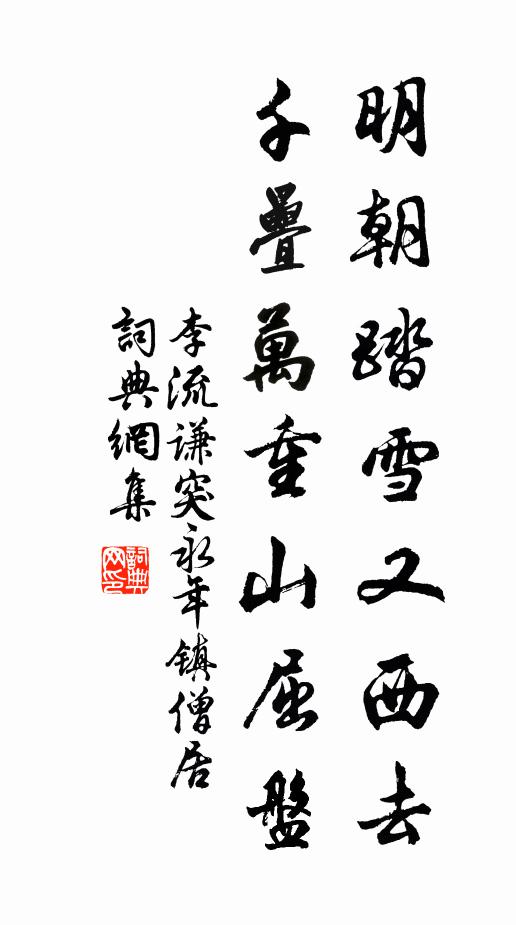 明朝踏雪又西去
千疊萬重山屈盤
李流謙突永年鎮僧居
詞典網集
詞典网印